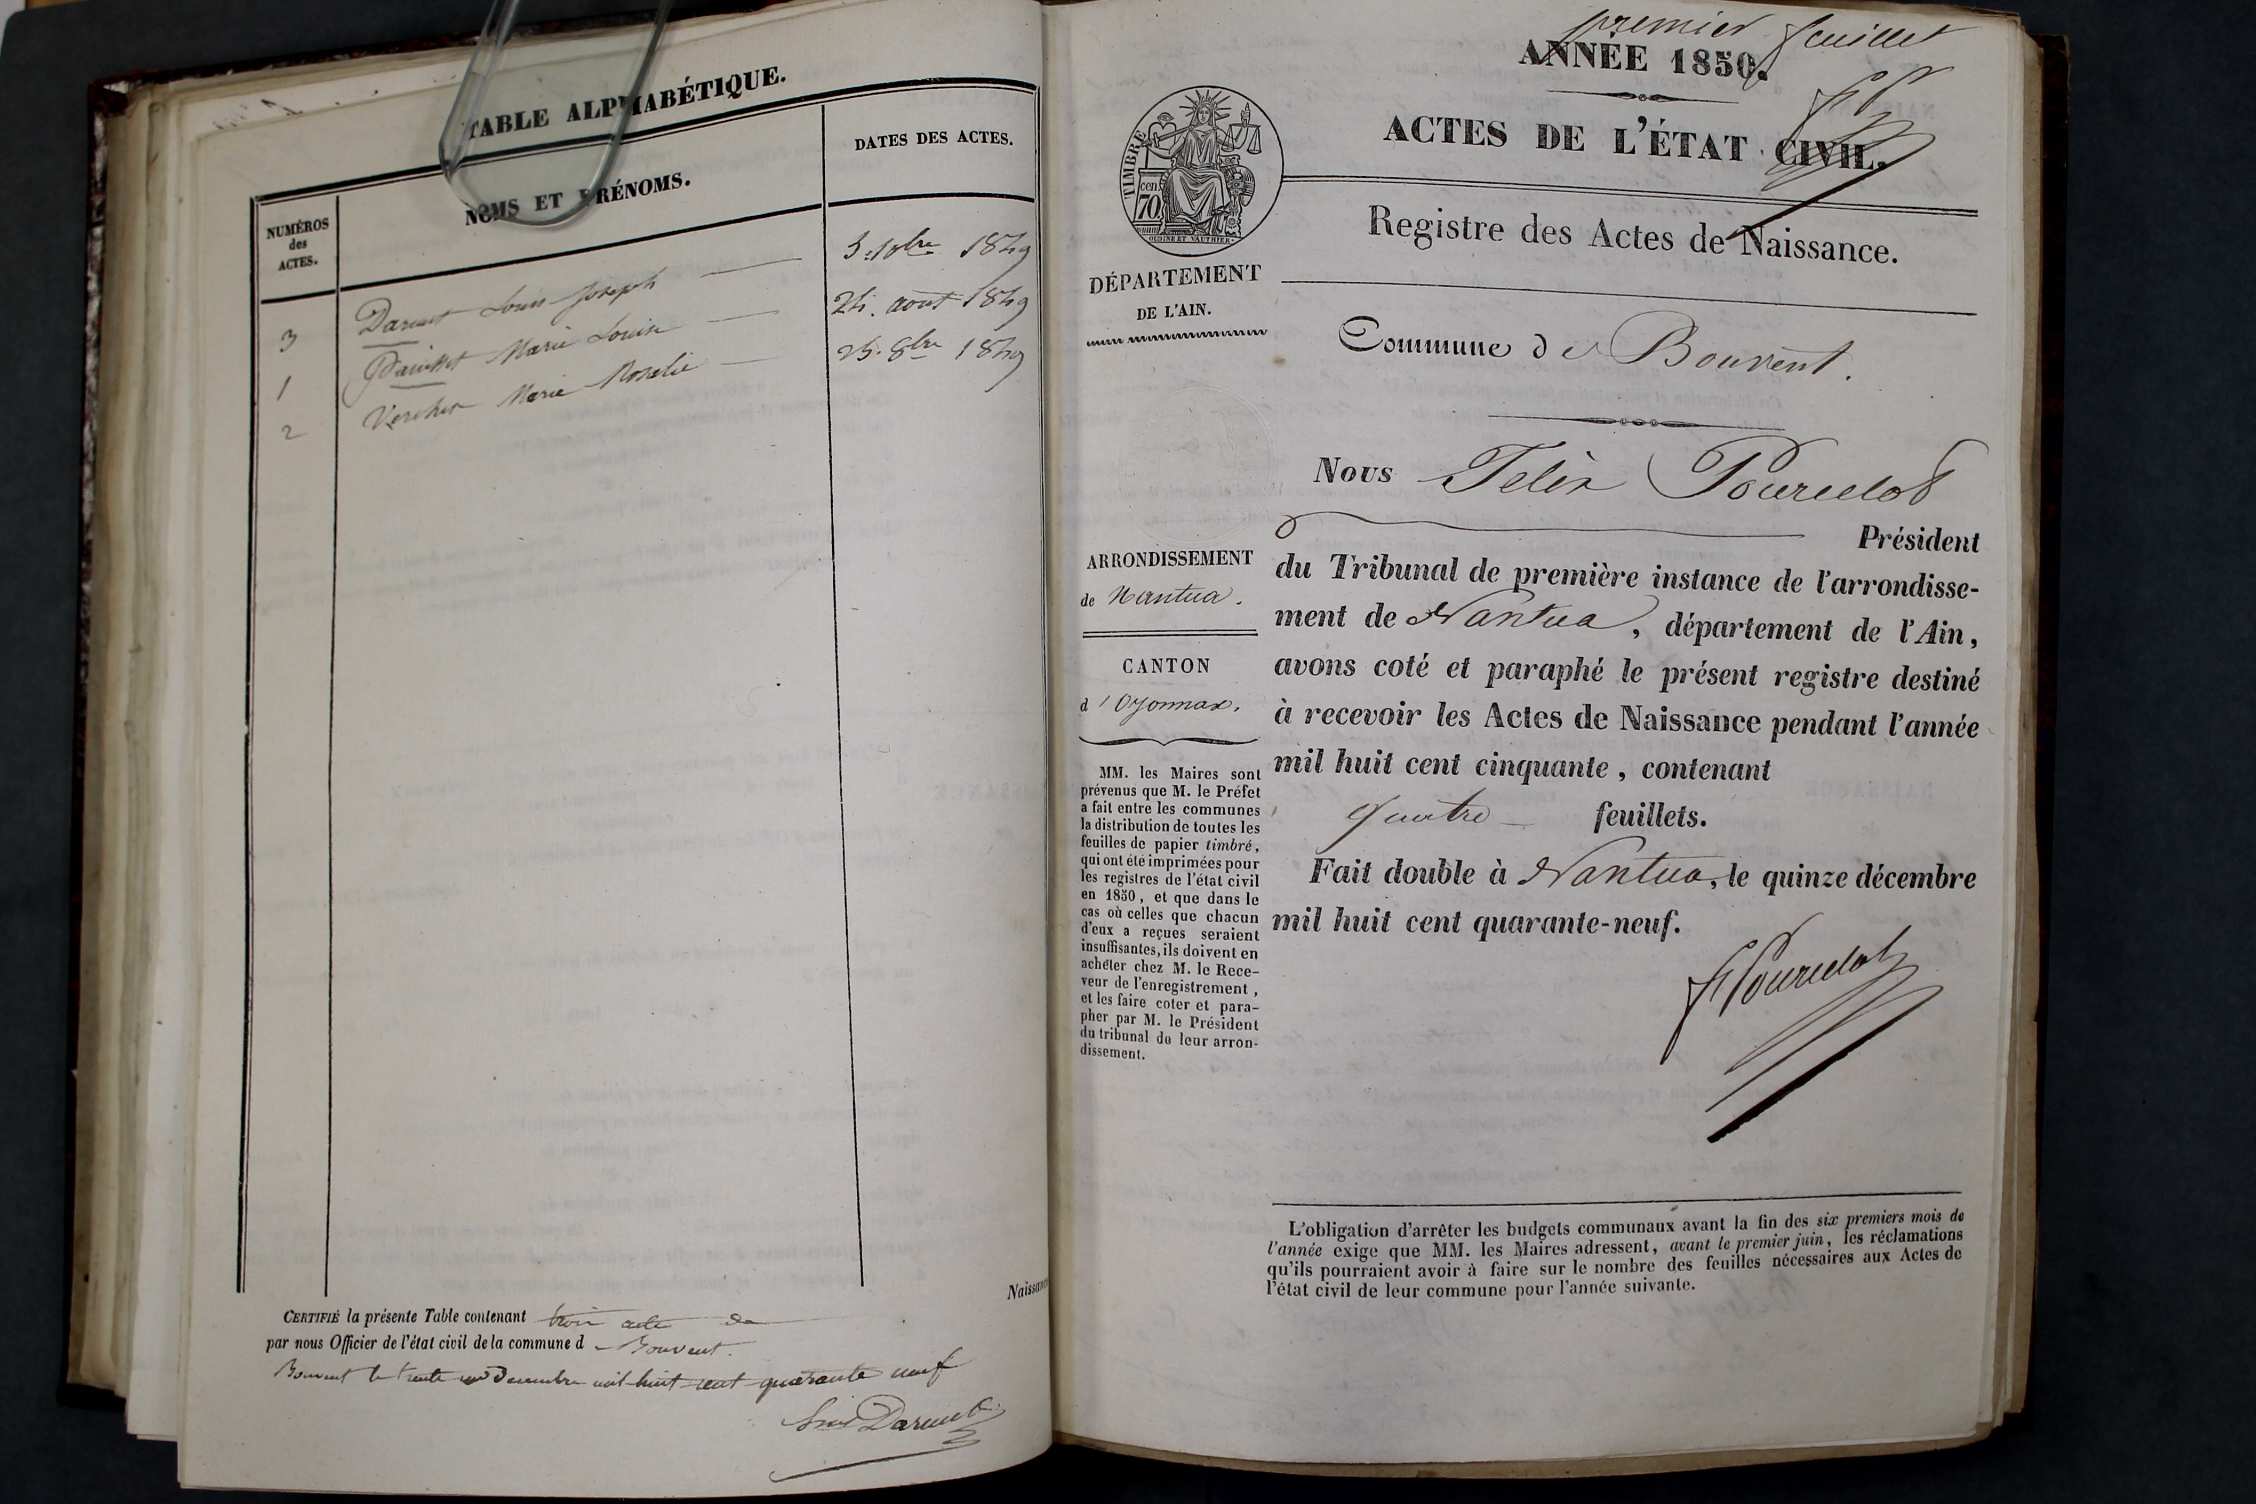 TABLE ALPHABÉTIQUE.
NUMÉROS
des
ACTES.
NOMS ET PRÉNOMS.
DATES DES ACTES.
3 Darmet Louis Joseph 3. 10bre 1849
1 Marie Louise 24. août 1849
2 Marie Rosalie 25. 8bre 1849
CERTIFIÉ la présente Table contenant trois acte de
par nous Officier de l'état civil de la commune d Bouvent.
Bouvent le trente un Decembre mil huit cent quarante neuf
Darmet
Naissance
premier feuillet
ANNÉE 1850.
FP
ACTES DE L'ÉTAT CIVIL.
TIMBRE
70 cen
OUDINE ET VAUTHIER
Registre des Actes de Naissance.
DÉPARTEMENT
DE L'AIN.
Commune de Bouvent.
Nous Félix Pourcelot
Président
du Tribunal de première instance de l'arrondisse-
ment de Nantua, département de l'Ain,
avons coté et paraphé le présent registre destiné
à recevoir les Actes de Naissance pendant l'année
mil huit cent cinquante, contenant
quatre feuillets.
Fait double à Nantua, le quinze décembre
mil huit cent quarante-neuf.
F Pourcelot
ARRONDISSEMENT
de Nantua.
CANTON
d'Oyonnax.
MM. les Maires sont
prévenus que M. le Préfet
a fait entre les communes
la distribution de toutes les
feuilles de papier timbré,
qui ont été imprimées pour
les registres de l'état civil
en 1850, et que dans le
cas où celles que chacun
d'eux a reçues seraient
insuffisantes, ils doivent en
achêter chez M. le Rece-
veur de l'enregistrement,
et les faire coter et para-
pher par M. le Président
du tribunal de leur arron-
dissement.
L'obligation d'arrêter les budgets communaux avant la fin des six premiers mois de
l'année exige que MM. les Maires adressent, avant le premier juin, les réclamations
qu'ils pourraient avoir à faire sur le nombre des feuilles nécessaires aux Actes de
l'état civil de leur commune pour l'année suivante.